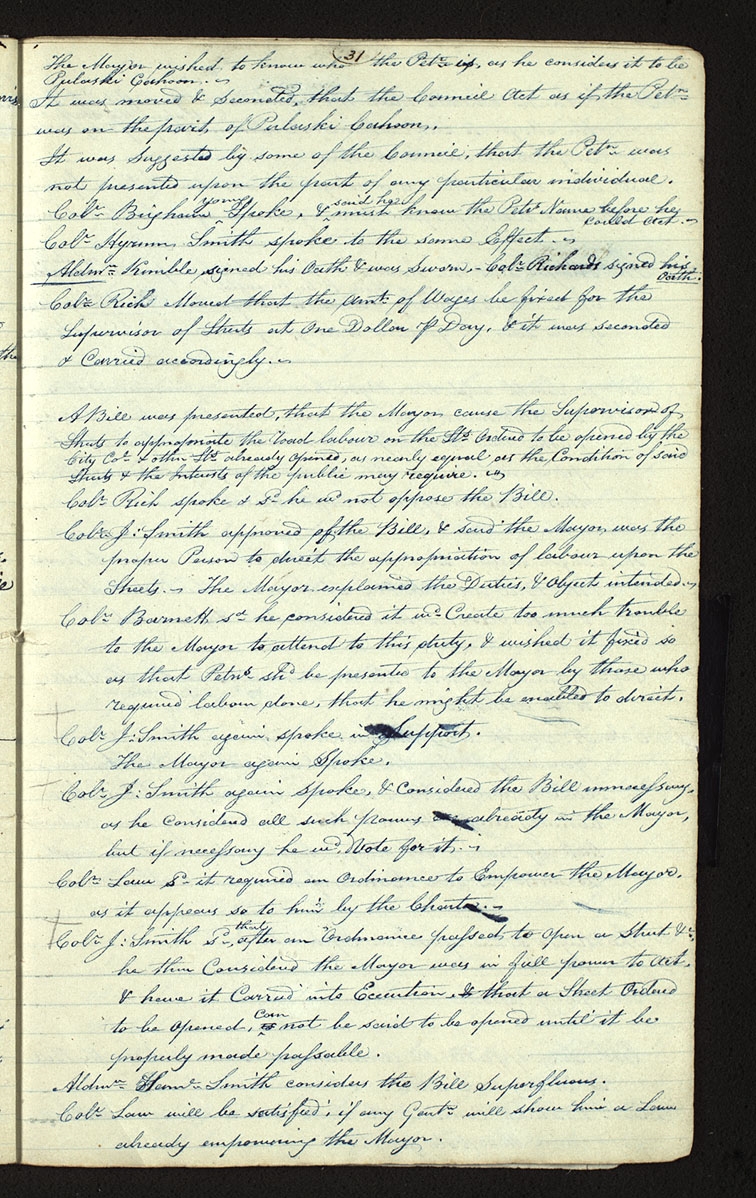 31
The Mayor wished to know who the Petr. is, as he considers it to be
Pulaski Cahoon.
It was moved & Seconded, that the Council Act as if the Petn.
was on the part of Pulaski Cahoon.
It was Suggested by some of the Council, that the Petn. was
not presented upon the part of any particular individual.
Colr. Brigham Young Spoke, & said he must know the Petrs. Name before he
could act.
Colr. Hyrum Smith spoke to the same Effect.
Aldmn. Kimble, signed his Oath & was Sworn, Colr. Richards signed his
Oath.
Colr. Rich Moved that the Amt. of Wages be fixed for the
Supervisor of Streets at One Dollar ⅌ Day, & it was seconded
& Carried accordingly.
A Bill was presented, that the Mayor cause the Supervisor of
Streets to appropriate the road labour on the Sts. Ordered to be opened by the
City Col. & other Sts. already opened, as nearly equal as the Condition of said
Streets & the Interests of the public may require.
Colr. Rich spoke & sd. he wd. not oppose the Bill.
Colr. J: Smith approved of the Bill, & said the Mayor was the
proper Person to direct the appropriation of labour upon the
Streets. The Mayor explained the Duties, & Object intended.
Colr. Barnett sd. he considered it wd. Create too much trouble
to the Mayor to attend to this duty, & wished it fixed so
as that Petns. shd. be presented to the Mayor by those who
required labour done, that he might be enabled to direct.
Colr. J: Smith again spoke in Support.
The Mayor again Spoke.
Colr. J: Smith again Spoke, & Considered the Bill unnecessary,
as he Considered all such powers already in the Mayor,
but if necessary he wd. Vote for it.
Colr. Law Sd. it required an Ordinance to Empower the Mayor,
as it appears so to him by the Charter.
Colr. J: Smith Sd. that after an Ordinance passed to open a Street &c.,
he then Considered the Mayor was in full power to Act,
& have it Carried into Execution, & that a Street Ordered
to be opened, can not be said to be opened until it be
properly made passable.
Aldmn. Saml. Smith considers the Bill Superfluous.
Colr. Law will be satisfied, if any Gentn. will show him a Law
already empowering the Mayor.